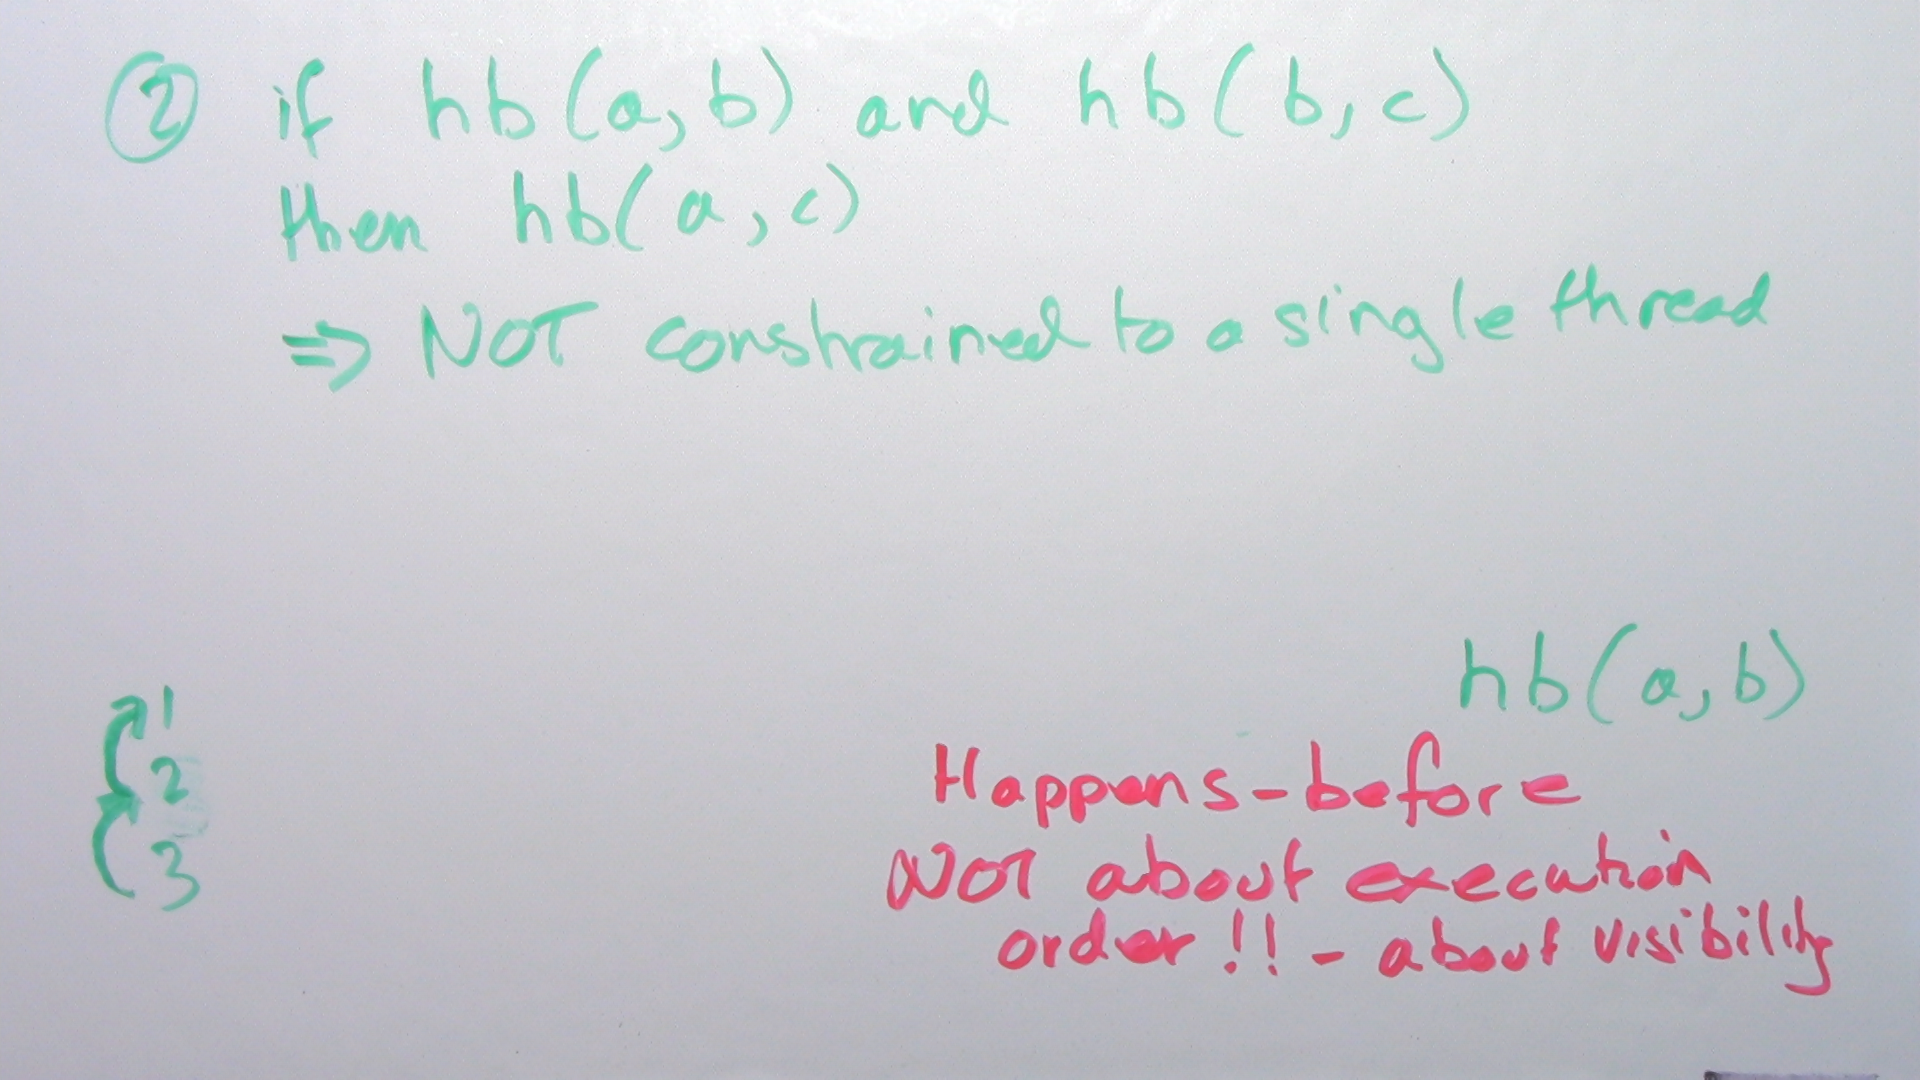 ② if hb(a,b) and hb(b,c)
then hb(a,c)
⇒ NOT constrained to a single thread
hb(a,b)
1
2
3
Happens-before
NOT about execution
order!! - about visibility